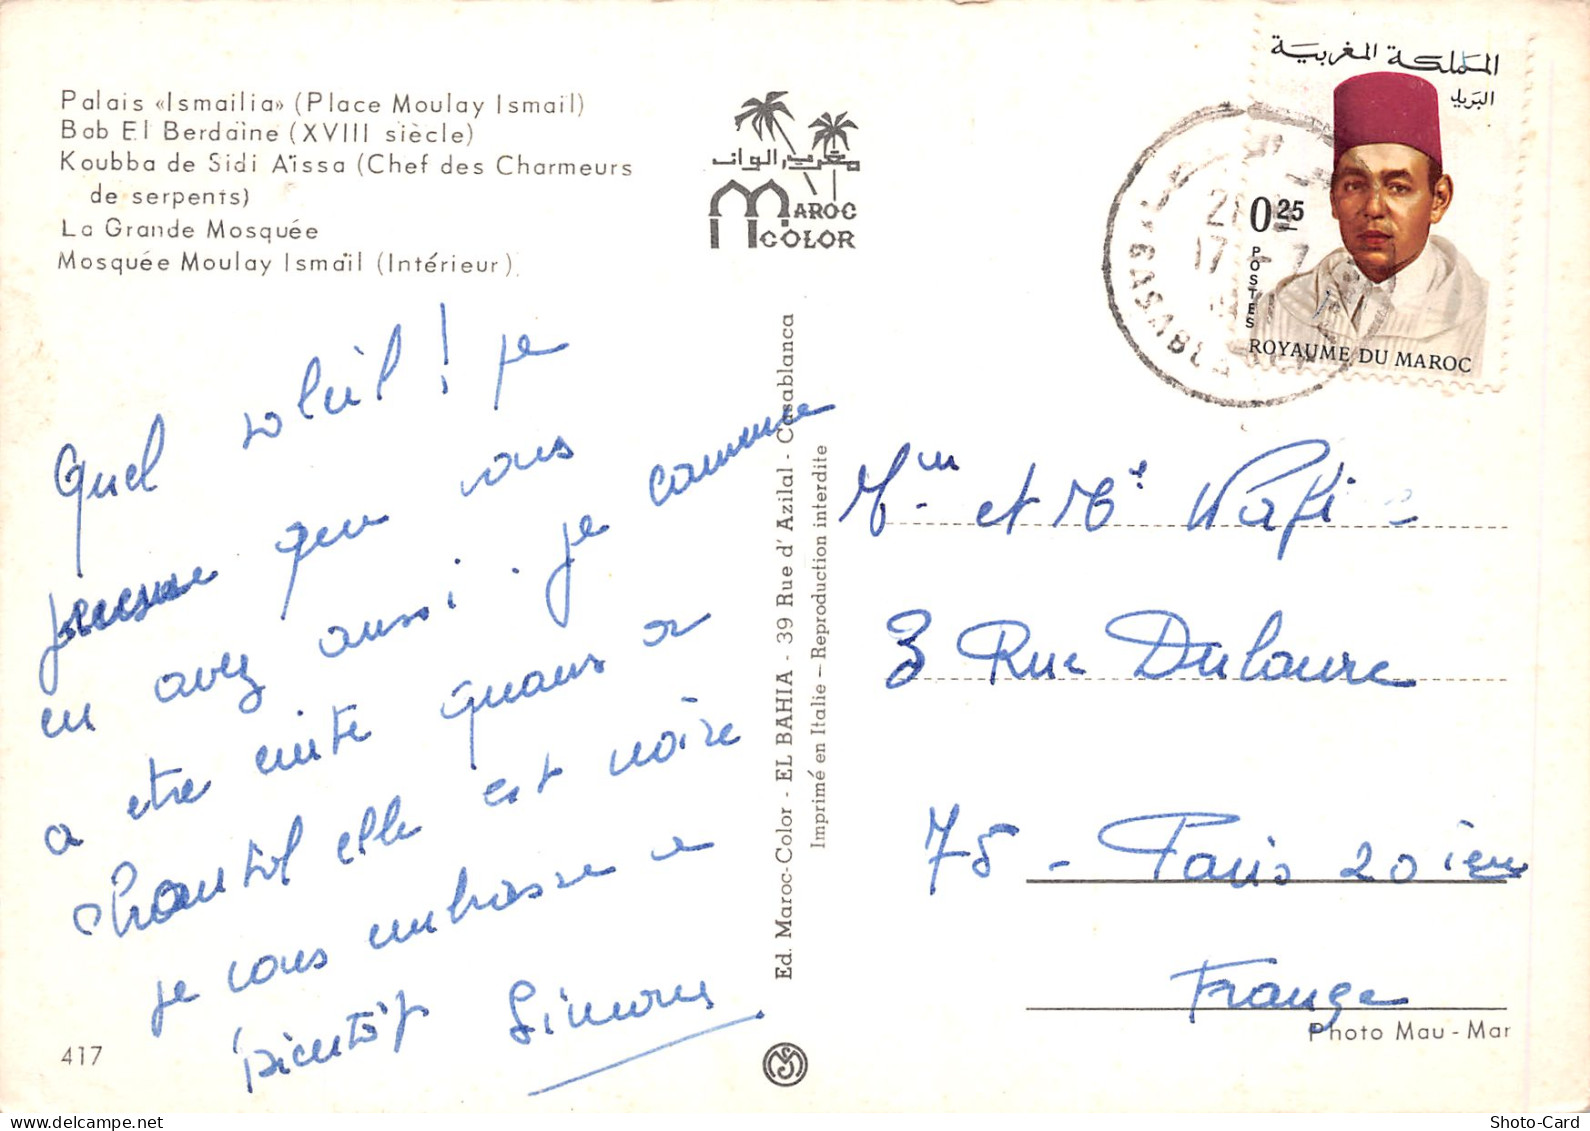 Palais «Ismailia» (Place Moulay Ismail)
Bab El Berdaïne (XVIII siècle)
Koubba de Sidi Aïssa (Chef des Charmeurs
de serpents)
La Grande Mosquée
Mosquée Moulay Ismaïl (Intérieur)
MAROC
COLOR
المملكة المغربية
البريد
0.25
POSTES
ROYAUME DU MAROC
CASABLANCA
Quel soleil! je
pense que vous
en avez aussi. je commence
a etre cuite quans a
Chantal elle est noire
je vous embrasse a
bientôt Simone
417
Ed. Maroc-Color - EL BAHIA - 39 Rue d'Azilal - Casablanca
Imprimé en Italie – Reproduction interdite
et
3 Rue Dulaure
75 - Paris 20 ieme
France
Photo Mau - Mar
Shoto-Card